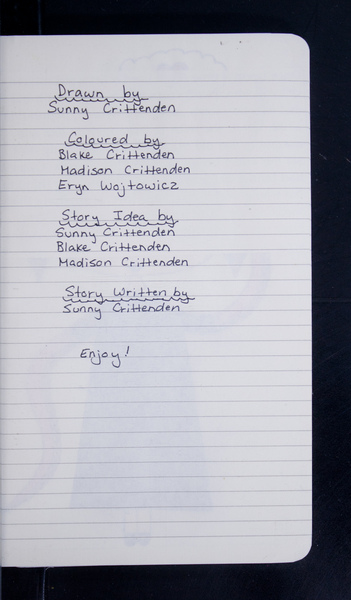 Drawn by
Sunny Crittenden
Coloured by
Blake Crittenden
Madison Crittenden
Eryn Wojtowicz
Story Idea by
Sunny Crittenden
Blake Crittenden
Madison Crittenden
Story Written by
Sunny Crittenden
Enjoy!